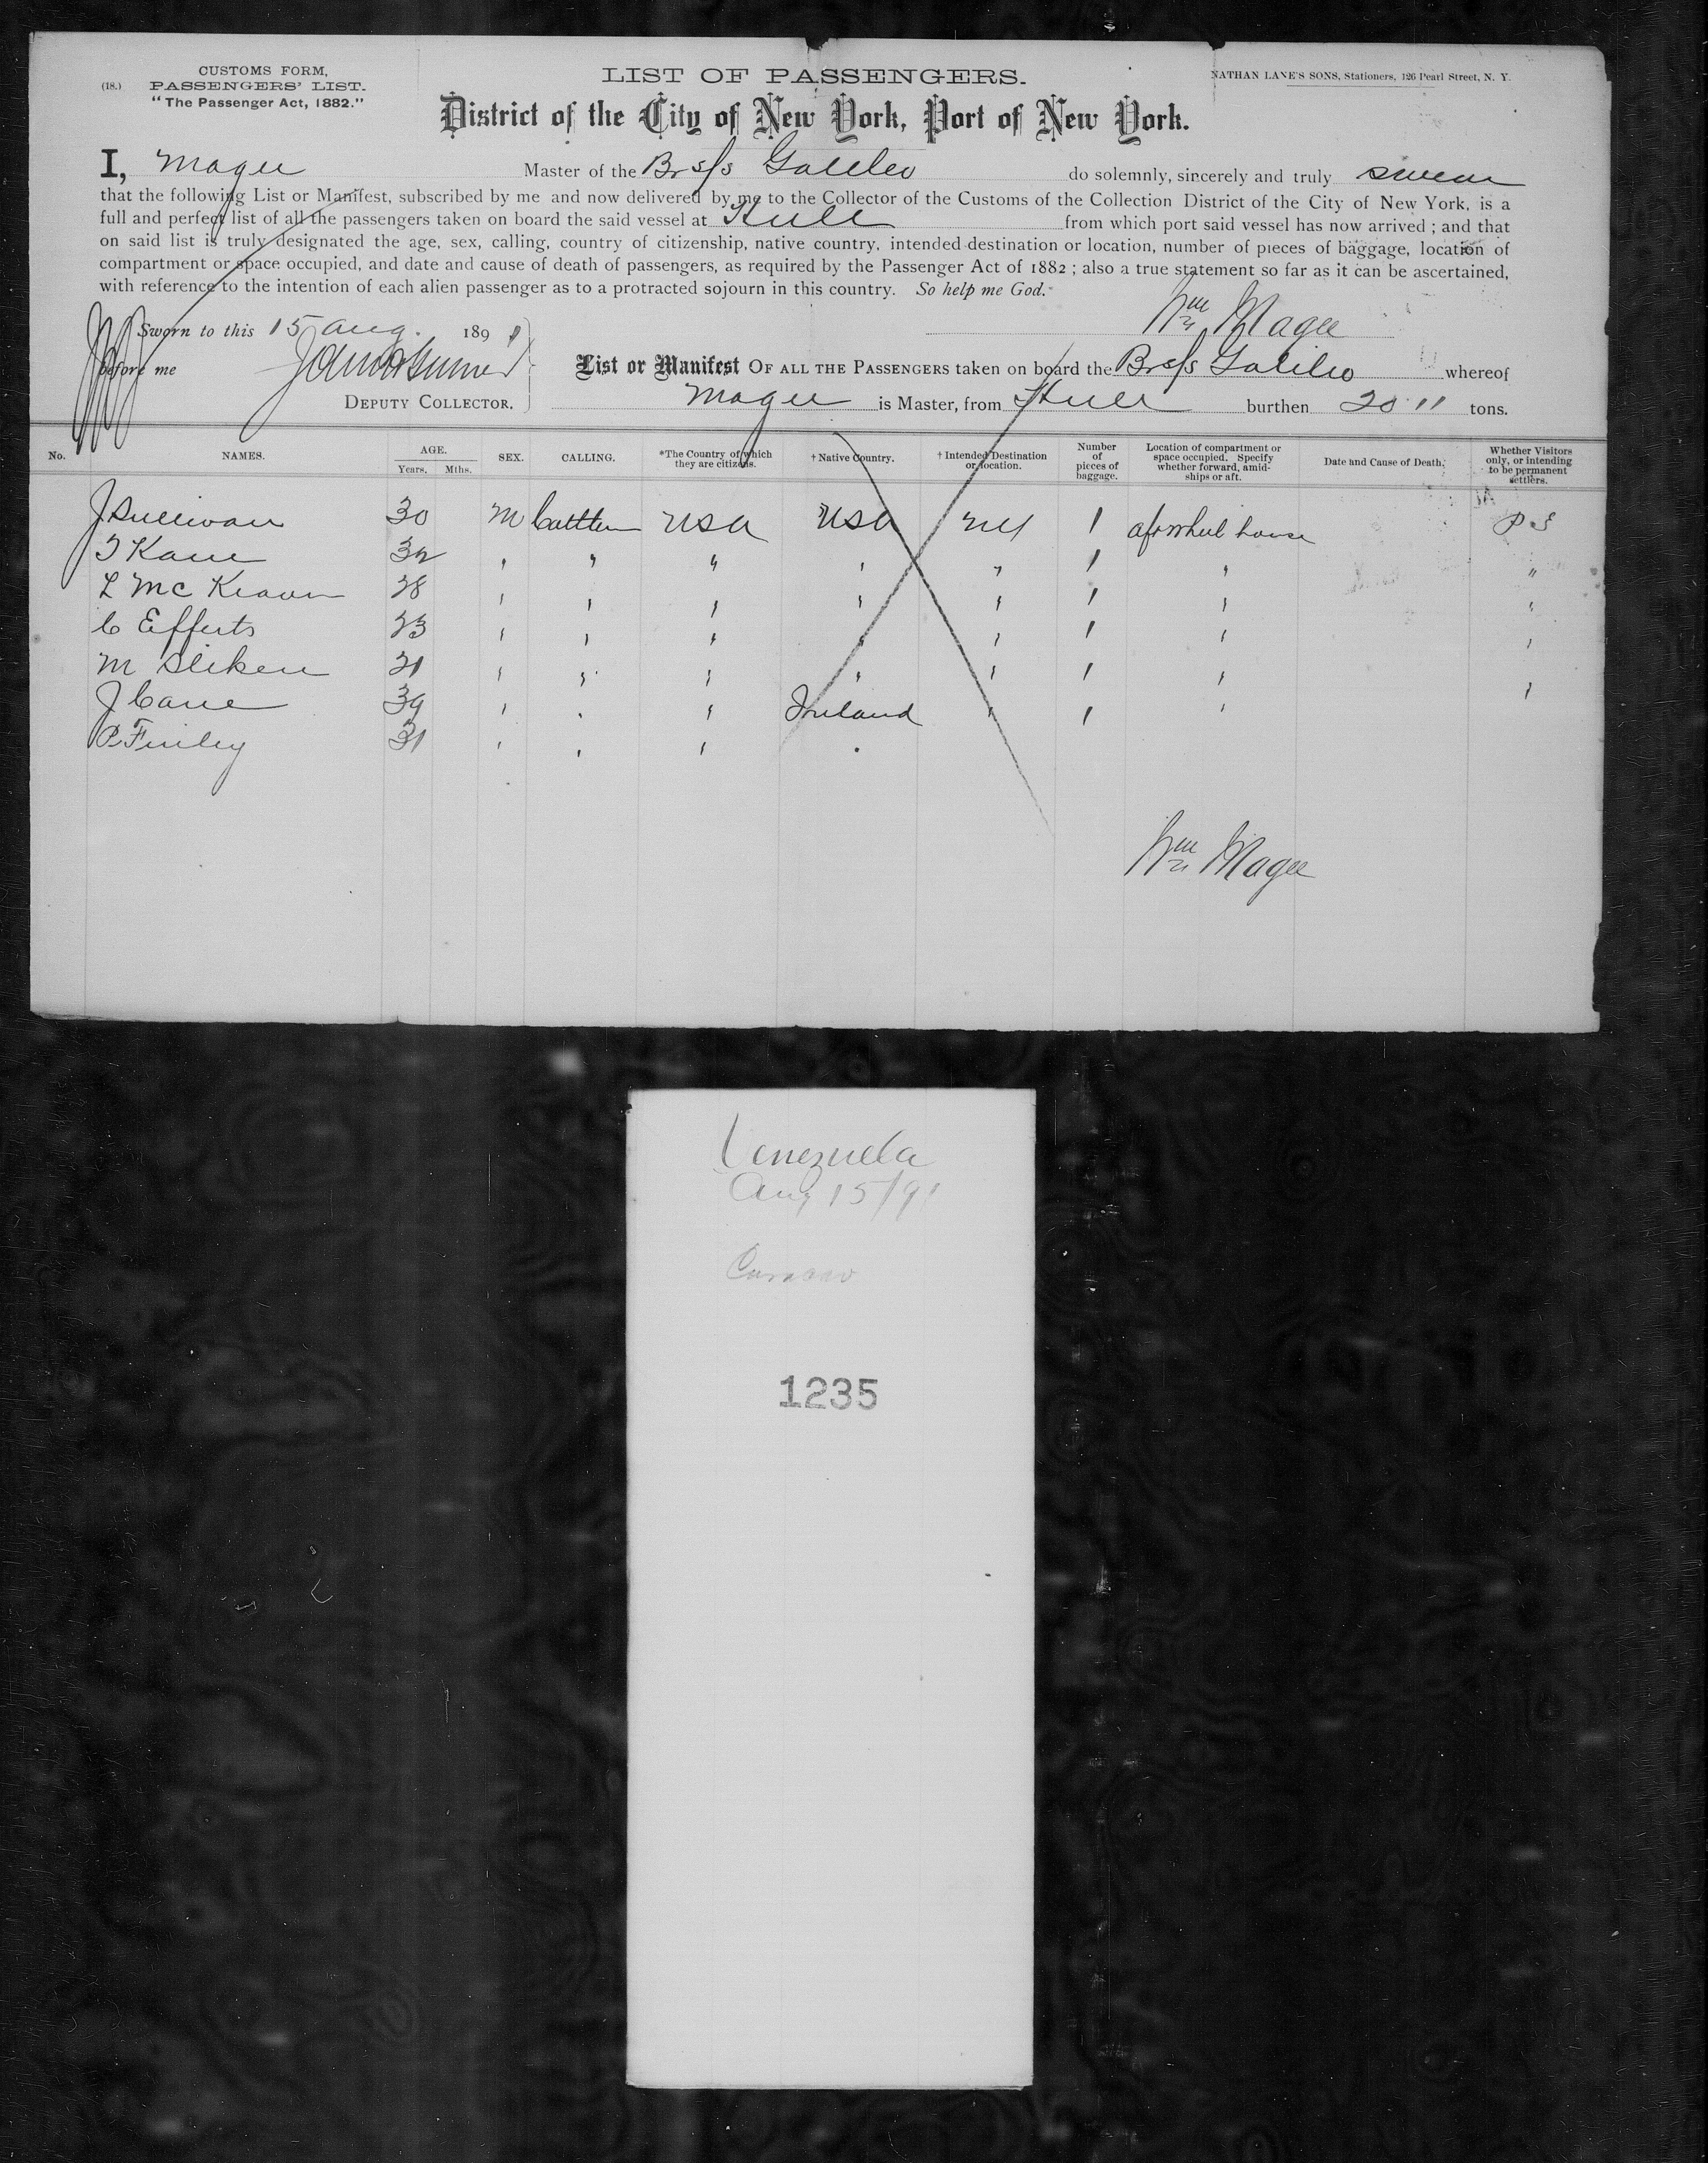 (18.)
CUSTOMS FORM,
PASSENGERS' LIST.
"The Passenger Act, 1882."
LIST OF PASSENGERS.
NATHAN LANE'S SONS, Stationers, 126 Pearl Street, N. Y.
District of the City of New York, Port of New York.
I, Magee Master of the Br s/s Galileo do solemnly, sincerely and truly swear
that the following List or Manifest, subscribed by me and now delivered by me to the Collector of the Customs of the Collection District of the City of New York, is a
full and perfect list of all the passengers taken on board the said vessel at Hull from which port said vessel has now arrived ; and that
on said list is truly designated the age, sex, calling, country of citizenship, native country, intended destination or location, number of pieces of baggage, location of
compartment or space occupied, and date and cause of death of passengers, as required by the Passenger Act of 1882 ; also a true statement so far as it can be ascertained,
with reference to the intention of each alien passenger as to a protracted sojourn in this country. So help me God.
Wm Magee
Sworn to this 15 Aug. 1891
before me
DEPUTY COLLECTOR.
List or Manifest OF ALL THE PASSENGERS taken on board the Br s/s Galileo whereof
Magee is Master, from Hull burthen 20 11 tons.
No. NAMES. AGE. Years. Mths. SEX. CALLING. *The Country of which they are citizens. † Native Country. † Intended Destination or location. Number of pieces of baggage. Location of compartment or space occupied. Specify whether forward, amidships or aft. Date and Cause of Death. Whether Visitors only, or intending to be permanent settlers.
J Sullivan 30 M USA USA NY 1 aft wheel house P S
T Kane 32 " " " " " 1 " "
L McKeown 28 " " " " " 1 " "
C Efferts 23 " " " " " 1 " "
M Sliken 21 " " " " " 1 " "
J Cane 39 " " " Ireland " 1 "
P. Finley 31 " " " "
Wm Magee
Venezuela
Aug 15/91
Curacao
1235